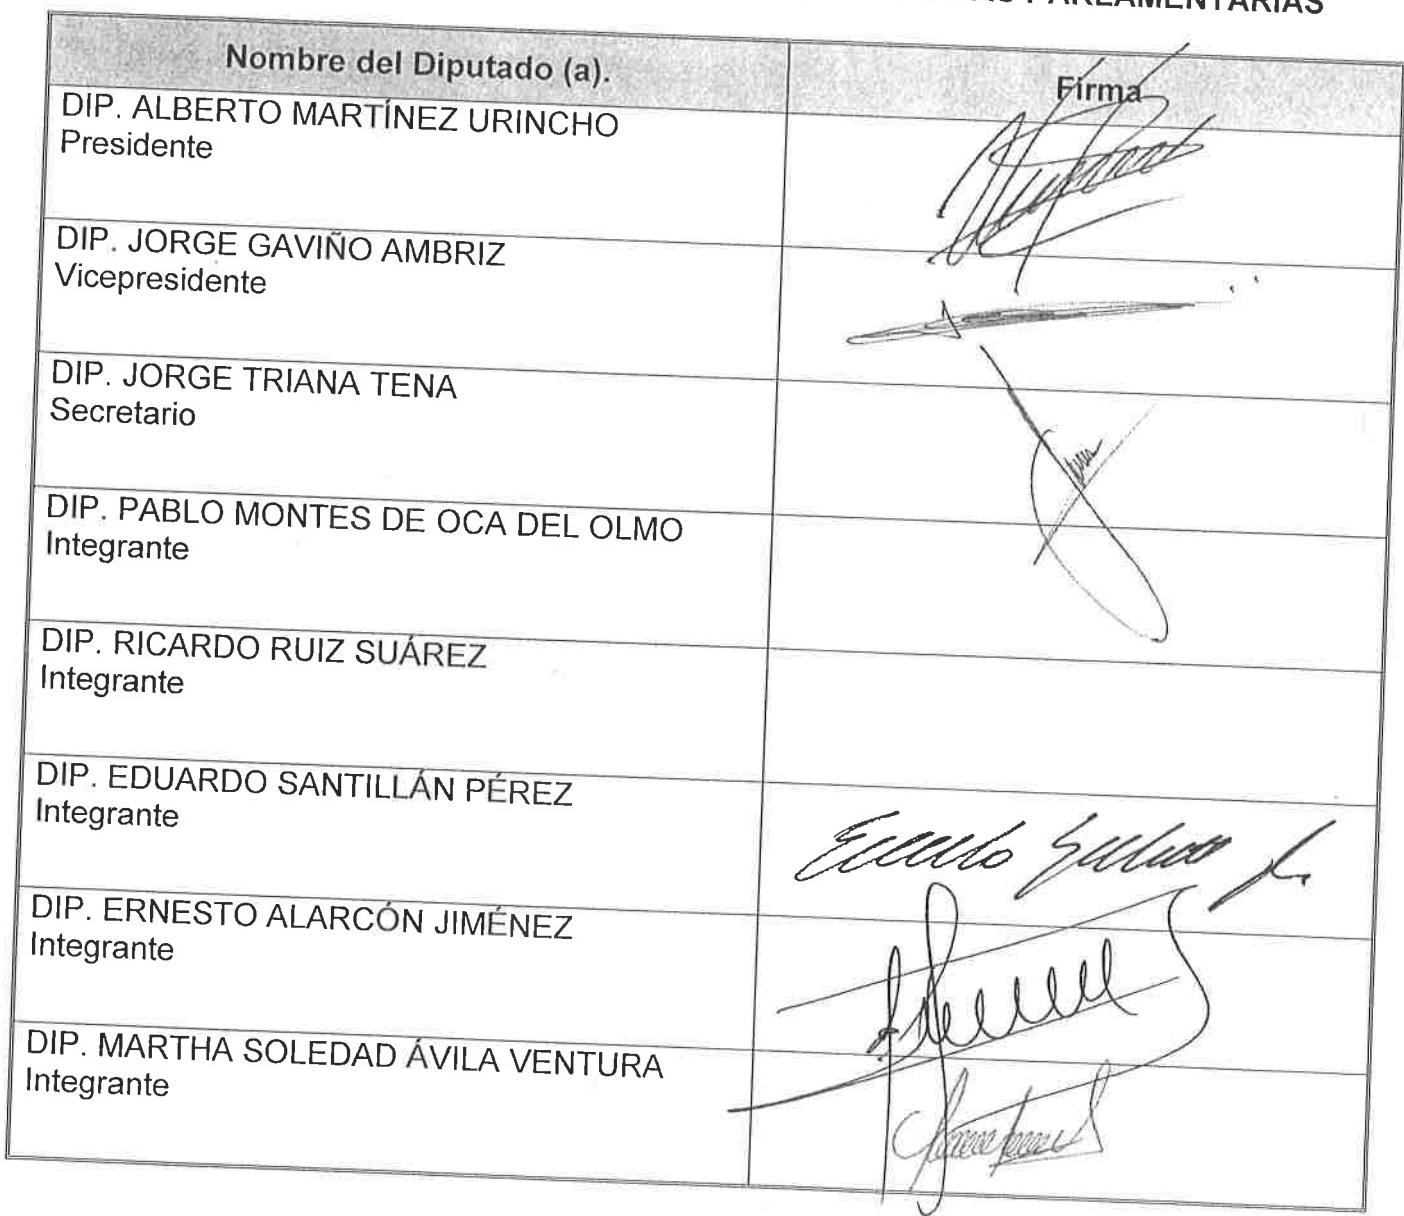 PARLAMENTARIAS
Nombre del Diputado (a).
Firma
DIP. ALBERTO MARTÍNEZ URINCHO
Presidente
DIP. JORGE GAVIÑO AMBRIZ
Vicepresidente
DIP. JORGE TRIANA TENA
Secretario
DIP. PABLO MONTES DE OCA DEL OLMO
Integrante
DIP. RICARDO RUIZ SUÁREZ
Integrante
DIP. EDUARDO SANTILLÁN PÉREZ
Integrante
DIP. ERNESTO ALARCÓN JIMÉNEZ
Integrante
DIP. MARTHA SOLEDAD ÁVILA VENTURA
Integrante